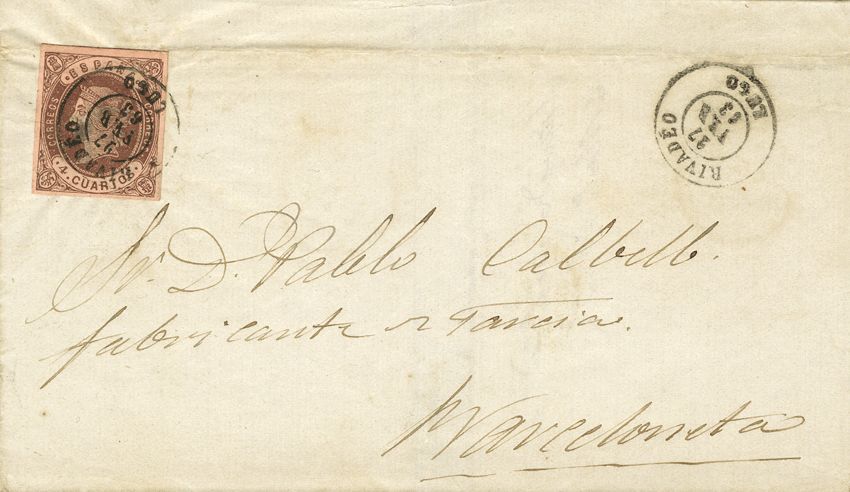 CORREOS ESPAÑA CORREOS
4 CUARTOS
RIVADÉO
27
FEB
63
LUGO
RIVADÉO
27
FEB
63
LUGO
Sr. D. Pablo Calbell.
fabricante
Barceloneta